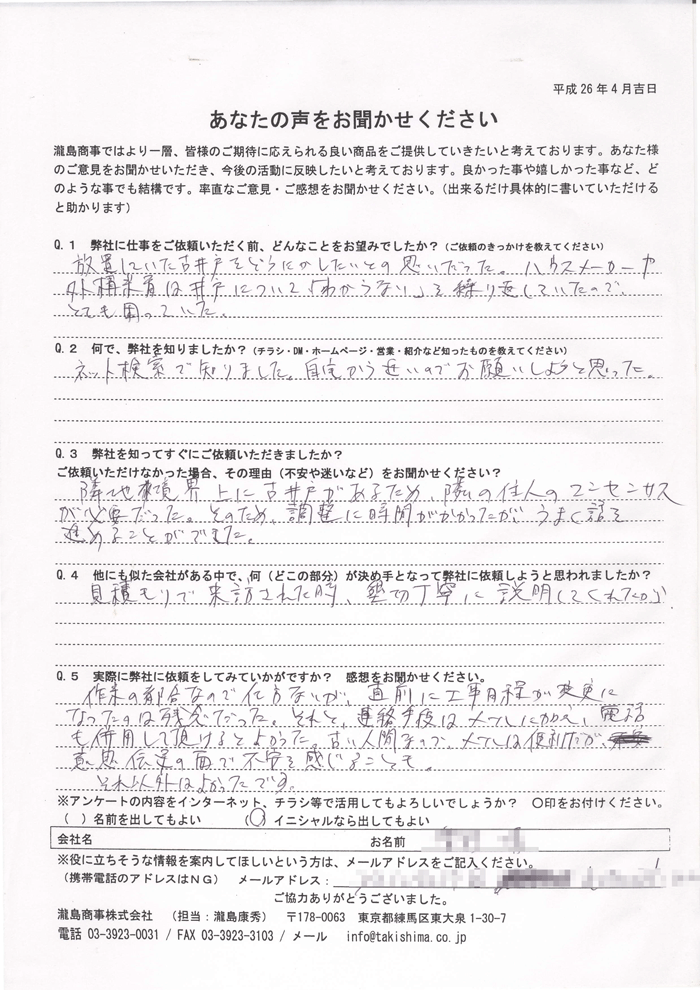 平成26年4月吉日
あなたの声をお聞かせください
瀧島商事ではより一層、皆様のご期待に応えられる良い商品をご提供していきたいと考えております。あなた様
のご意見をお聞かせいただき、今後の活動に反映したいと考えております。良かった事や嬉しかった事など、ど
のような事でも結構です。率直なご意見・ご感想をお聞かせください。（出来るだけ具体的に書いていただける
と助かります）
Q.1 弊社に仕事をご依頼いただく前、どんなことをお望みでしたか？（ご依頼のきっかけを教えてください）
放置していた古井戸をどうにかしたいとの思いだった。ハウスメーカーや
外構業者は井戸について「わからない」を繰り返していたので、
とても困っていた。
Q.2 何で、弊社を知りましたか？（チラシ・DM・ホームページ・営業・紹介など知ったものを教えてください）
ネット検索で知りました。自宅から近いのでお願いしようと思った。
Q.3 弊社を知ってすぐにご依頼いただきましたか？
ご依頼いただけなかった場合、その理由（不安や迷いなど）をお聞かせください？
隣地境界上に古井戸があるため、隣の住人のコンセンサス
が必要だった。そのため、調整に時間がかかったが、うまく話を
進めることができた。
Q.4 他にも似た会社がある中で、何（どこの部分）が決め手となって弊社に依頼しようと思われましたか？
見積もりで来訪された時、懇切丁寧に説明してくれたから
Q.5 実際に弊社に依頼をしてみていかがですか？ 感想をお聞かせください。
作業の都合なので仕方ないが、直前に工事日程が変更に
なったのは残念だった。それと、連絡手段はメールにかえ、電話
も併用して頂けるとよかった。古い人間なので、メールは便利だが、
意思伝達の面で不安を感じることも。
それ以外はよかったです。
※アンケートの内容をインターネット、チラシ等で活用してもよろしいでしょうか？ 〇印をお付けください。
（ ）名前を出してもよい （〇）イニシャルなら出してもよい
会社名 お名前
※役に立ちそうな情報を案内してほしいという方は、メールアドレスをご記入ください。
（携帯電話のアドレスはNG） メールアドレス：
ご協力ありがとうございました。
瀧島商事株式会社 （担当：瀧島康秀） 〒178-0063 東京都練馬区東大泉1-30-7
電話 03-3923-0031 / FAX 03-3923-3103 / メール info@takishima.co.jp